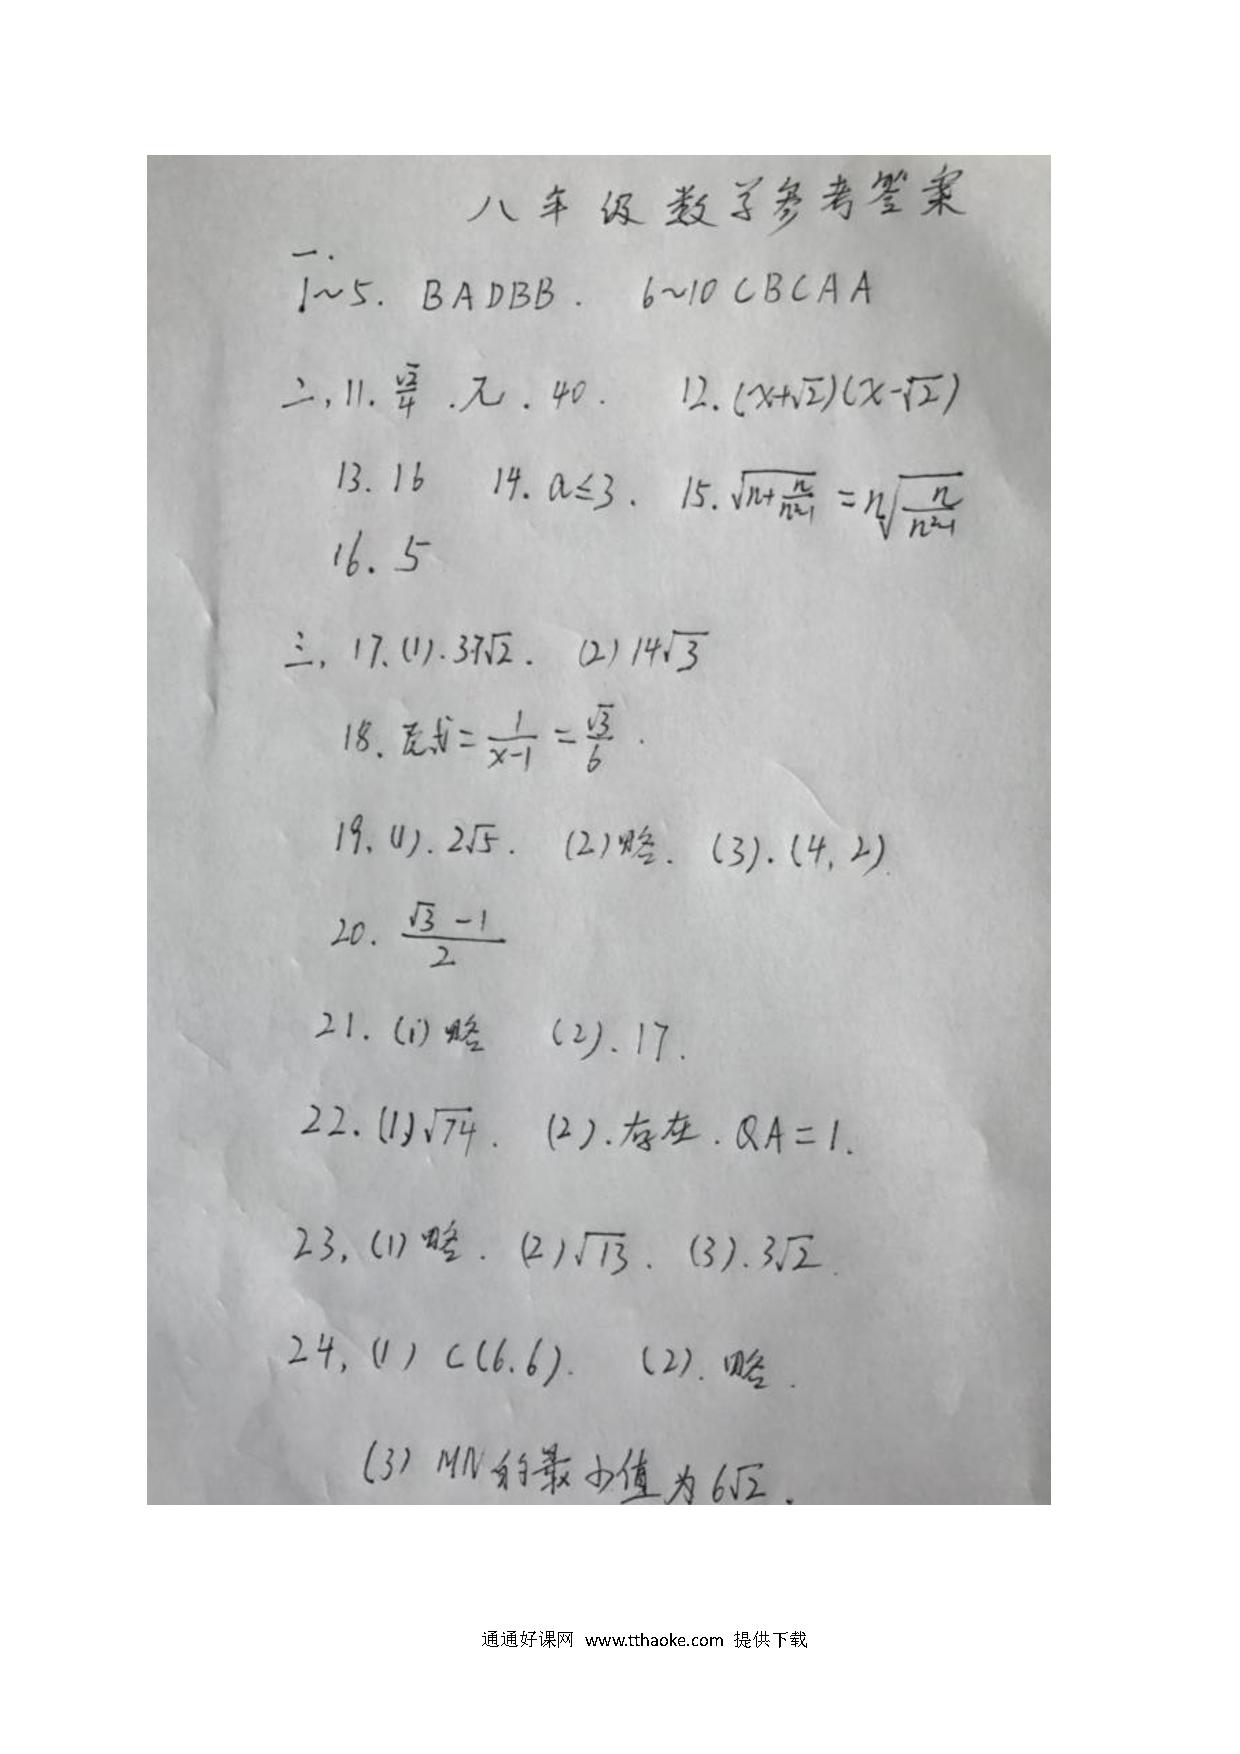 八年级数学参考答案
一.
1~5. BADBB. 6~10 CBCAA
二, 11. √2/4 . 无 . 40. 12. (x+√2)(x-√2)
13. 16 14. a≤3. 15. √(n+n/(n²-1)) = n√(n/(n²-1))
16. 5
三, 17. (1). 37√2. (2) 14√3
18. 原式= 1/(x-1) = √3/6 .
19. (1). 2√5. (2)略. (3). (4, 2).
20. (√3 -1)/2
21. (1)略 (2). 17.
22. (1)√74. (2). 存在. QA=1.
23, (1)略. (2)√13. (3). 3√2.
24, (1) C(6.6). (2). 略.
(3) MN的最小值为6√2.
通通好课网 www.tthaoke.com 提供下载